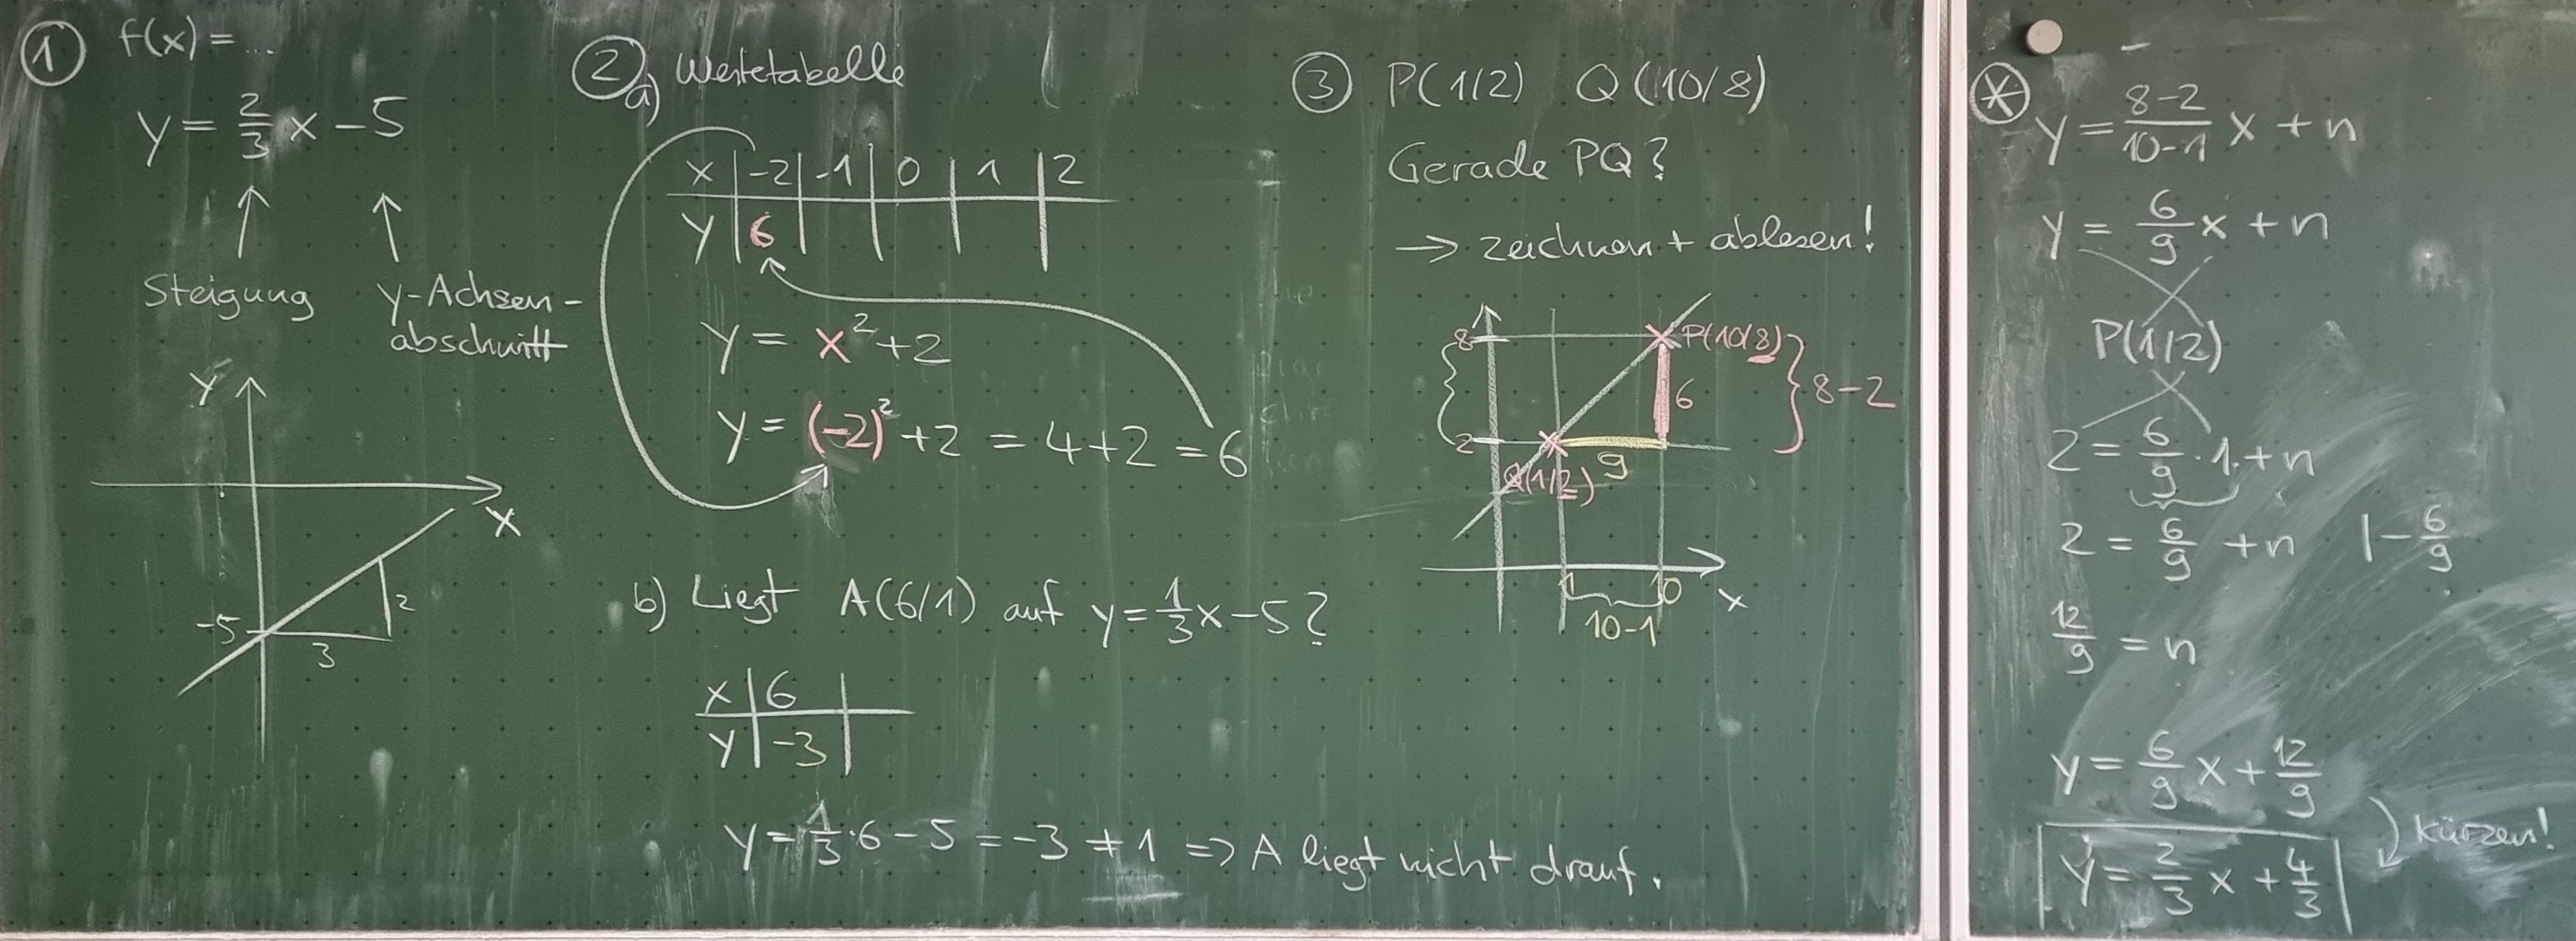 ① f(x) = ...
y = 2/3 x - 5
Steigung
y-Achsen-
abschnitt
y
x
-5
3
2
② a) Wertetabelle
x | -2 | -1 | 0 | 1 | 2
y | 6
y = x² + 2
y = (-2)² + 2 = 4 + 2 = 6
b) Liegt A(6/1) auf y = 1/3 x - 5?
x | 6
y | -3
y = 1/3 · 6 - 5 = -3 ≠ 1 => A liegt nicht drauf.
③ P(1/2) Q(10/8)
Gerade PQ?
→ zeichnen + ablesen!
8
P(10/8)
6
8-2
2
9
Q(1/2)
1
10
x
10-1
⊛
y = (8-2)/(10-1) x + n
y = 6/9 x + n
P(1/2)
2 = 6/9 · 1 + n
2 = 6/9 + n | - 6/9
12/9 = n
y = 6/9 x + 12/9
kürzen!
y = 2/3 x + 4/3